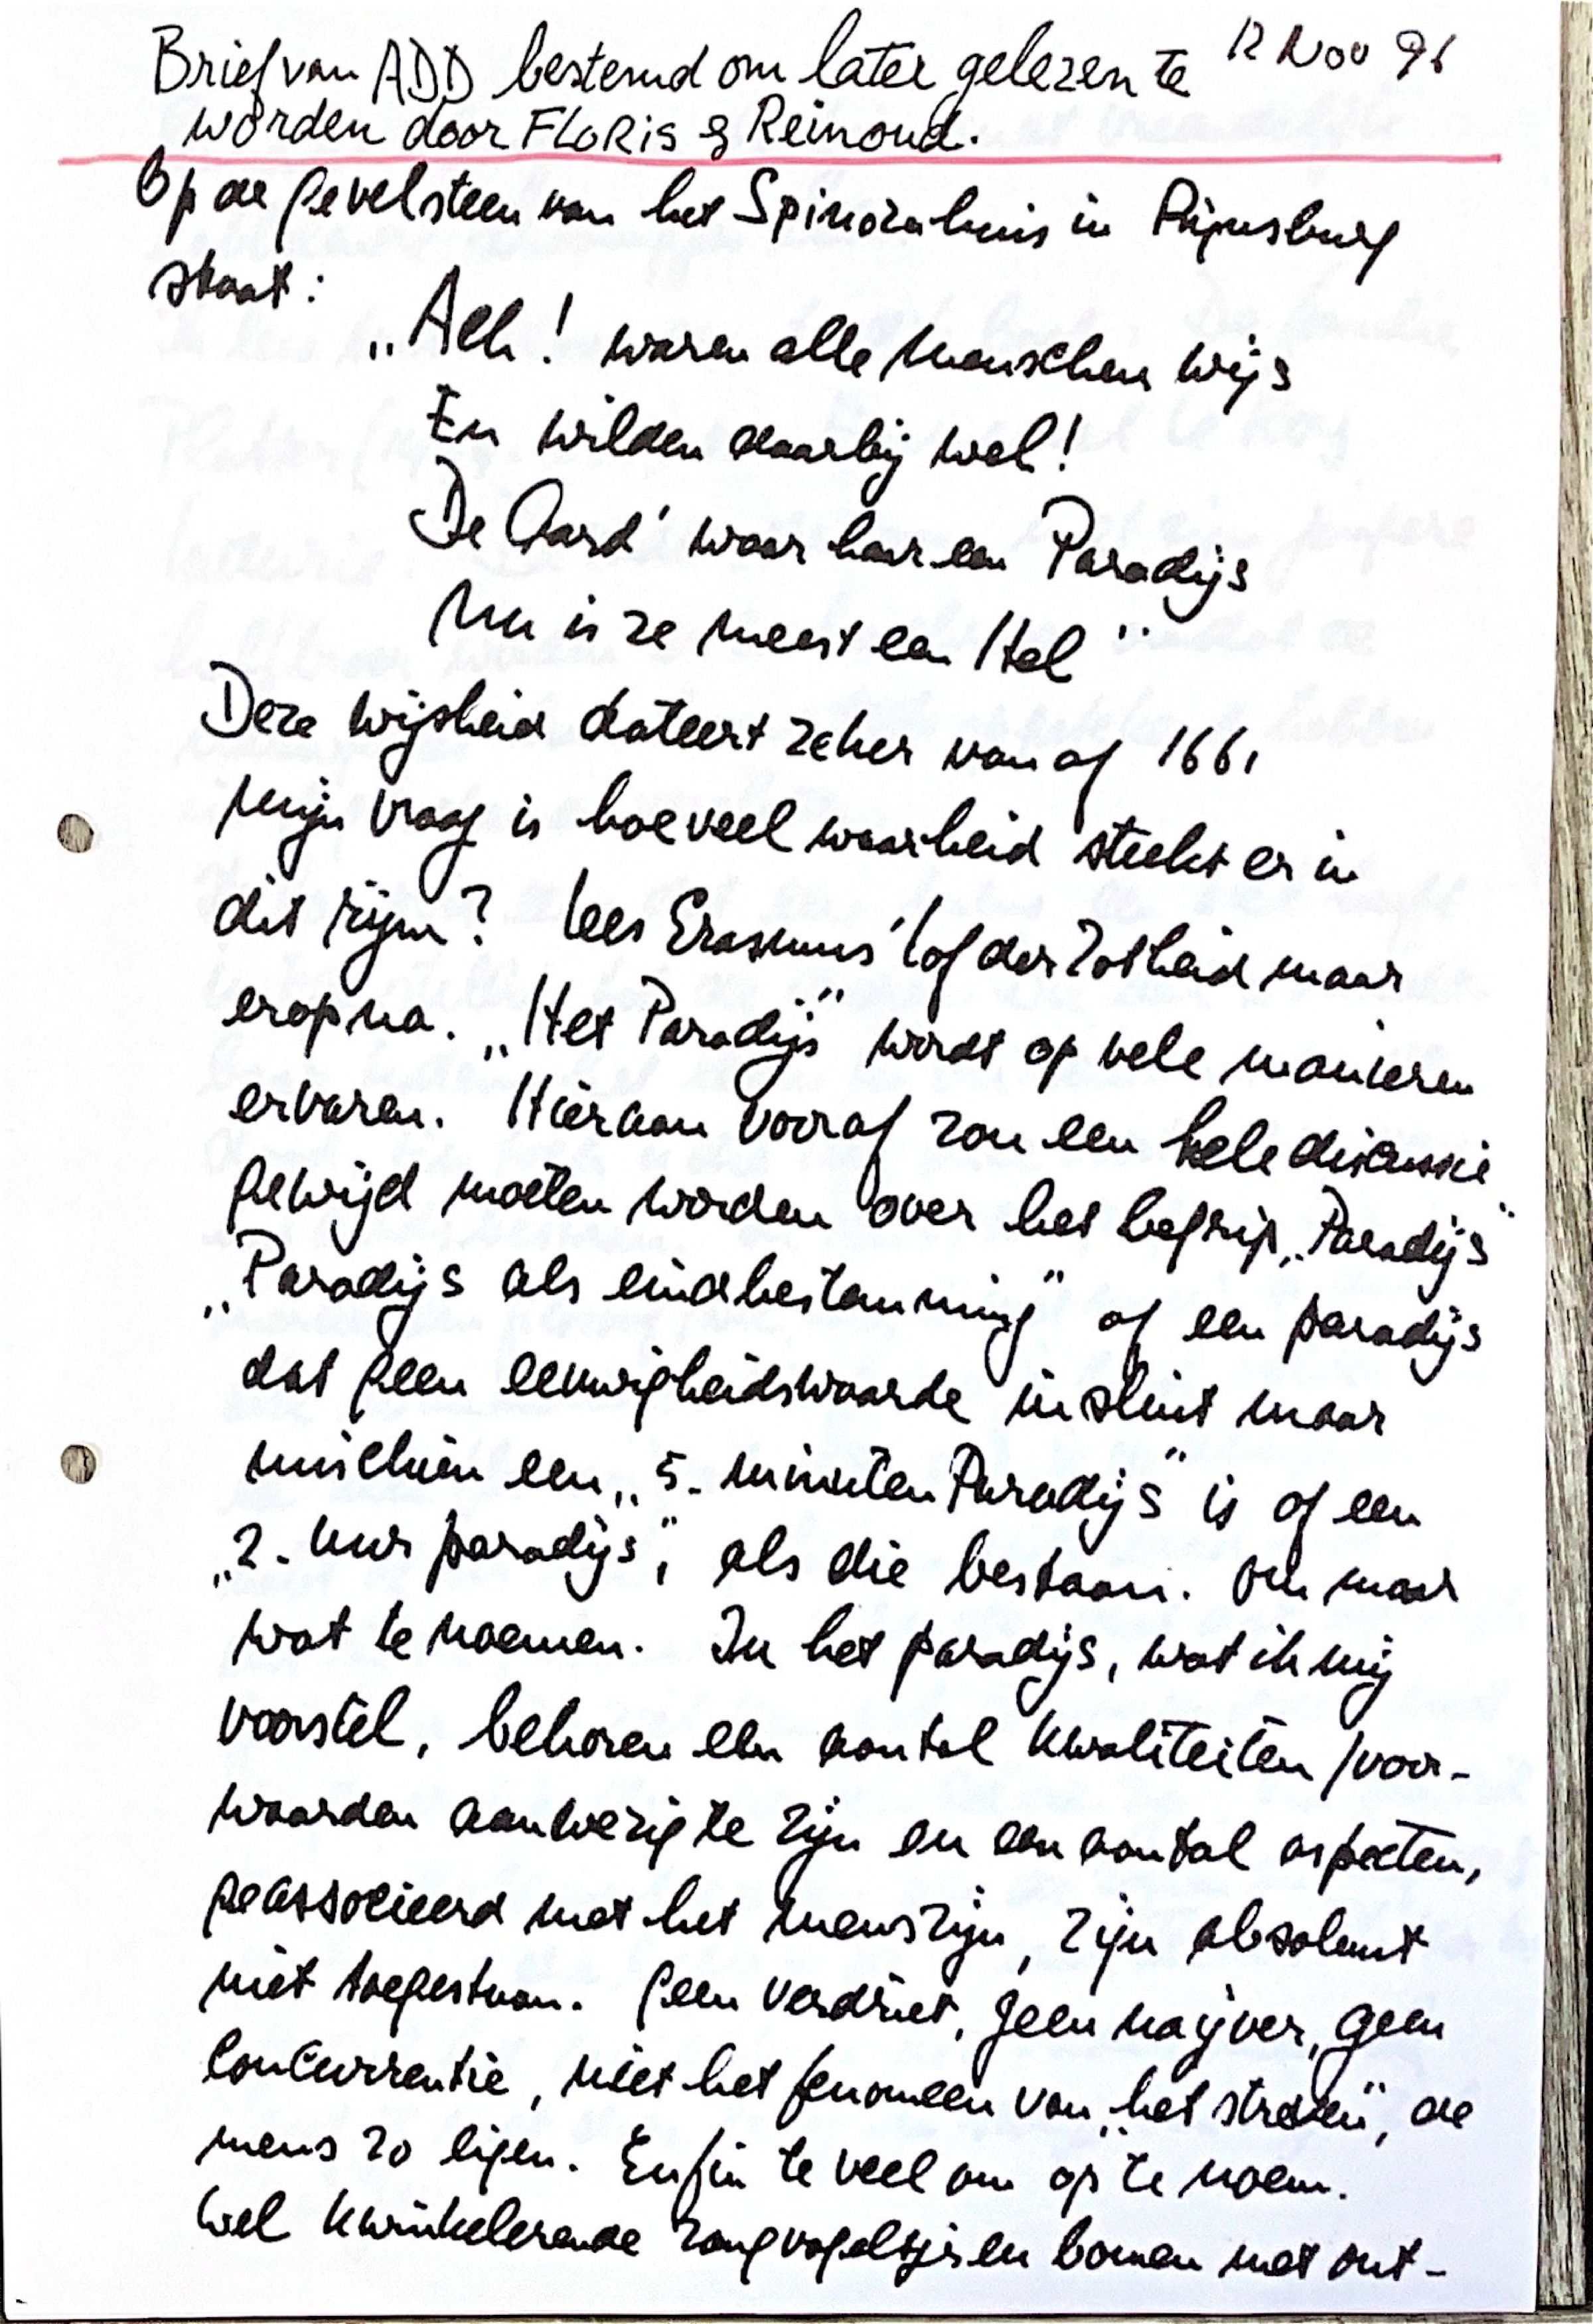 Brief van ADD bestemd om later gelezen te 12 Nov 96
worden door FLORIS & Reinoud.
Op de gevelsteen van het Spinozahuis in Rijnsburg
staat:
„Ach! waren alle menschen wijs
En wilden daarbij wel!
De Aard' waar haar een Paradijs
Nu is ze meest een Hel"
Deze wijsheid dateert zeker vanaf 1661
mijn vraag is hoeveel waarheid steekt er in
dit rijm? Lees Erasmus' Lof der Zotheid maar
erop na. „Het Paradijs" wordt op vele manieren
ervaren. Hieraan vooraf zou een hele discussie
gewijd moeten worden over het begrip „Paradijs"
„Paradijs als eindbestemming" of een paradijs
dat geen eeuwigheidswaarde insluit maar
misschien een „5-minuten Paradijs" is of een
„2-uur paradijs", als die bestaan. Om maar
wat te noemen. In het paradijs, wat ik mij
voorstel, behoren een aantal kwaliteiten/voor-
waarden aanwezig te zijn en een aantal aspecten,
geassocieerd met het menszijn, zijn absoluut
niet toegestaan. Geen verdriet, geen naijver, geen
concurrentie, niet het fenomeen van „het streven", de
mens zo eigen. Enfin te veel om op te noem.
Wel kwinkelerende zangvogeltjes en bomen met ont-